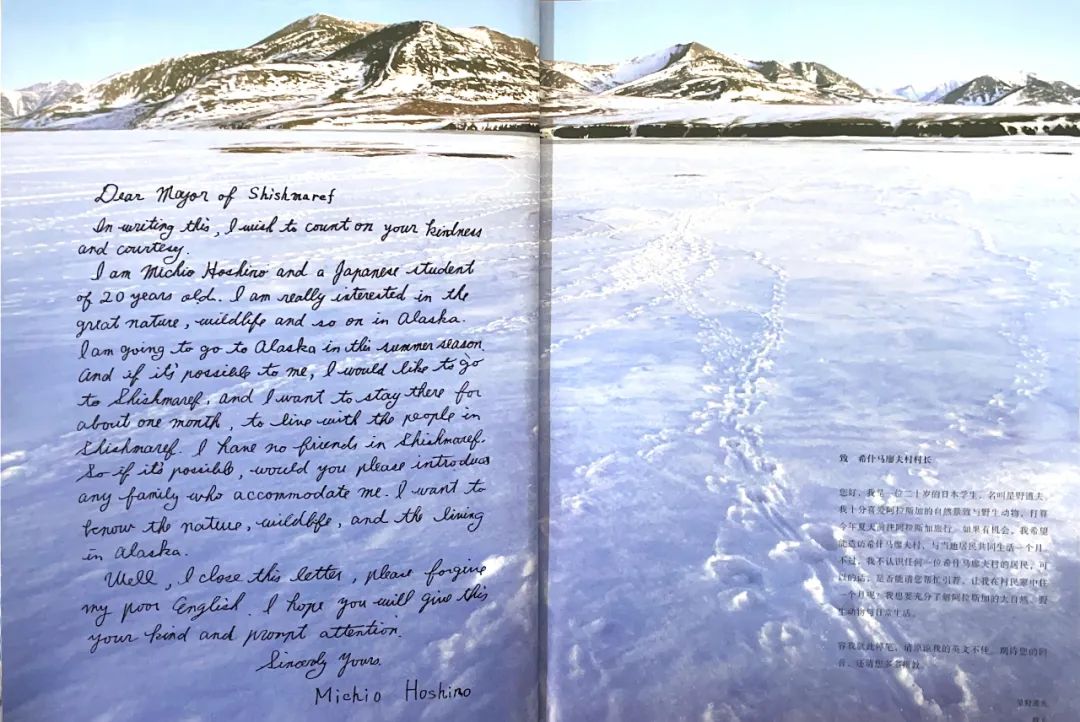 Dear Mayor of Shishmaref
In writing this, I wish to count on your kindness
and courtesy.
I am Michio Hoshino and a Japanese student
of 20 years old. I am really interested in the
great nature, wildlife and so on in Alaska.
I am going to go to Alaska in this summer season
And if it's possible to me, I would like to go
to Shishmaref, and I want to stay there for
about one month, to live with the people in
Shishmaref. I have no friends in Shishmaref.
So if it's possible, would you please introduce
any family who accommodate me. I want to
know the nature, wildlife, and the living
in Alaska.
Well, I close this letter, please forgive
my poor English. I hope you will give this
your kind and prompt attention.
Sincerely Yours.
Michio Hoshino
致 希什马廖夫村村长
您好，我是一位二十岁的日本学生，名叫星野道夫。
我十分喜爱阿拉斯加的自然景致与野生动物，打算
今年夏天前往阿拉斯加旅行。如果有机会，我希望
能造访希什马廖夫村，与当地居民共同生活一个月。
不过，我不认识任何一位希什马廖夫村的居民，可
以的话，是否能请您帮忙引荐，让我在村民家中住
一个月呢？我想要充分了解阿拉斯加的大自然、野
生动物与日常生活。
容我就此停笔，请原谅我的英文不佳。期待您的回
音，还请您多多
星野道夫